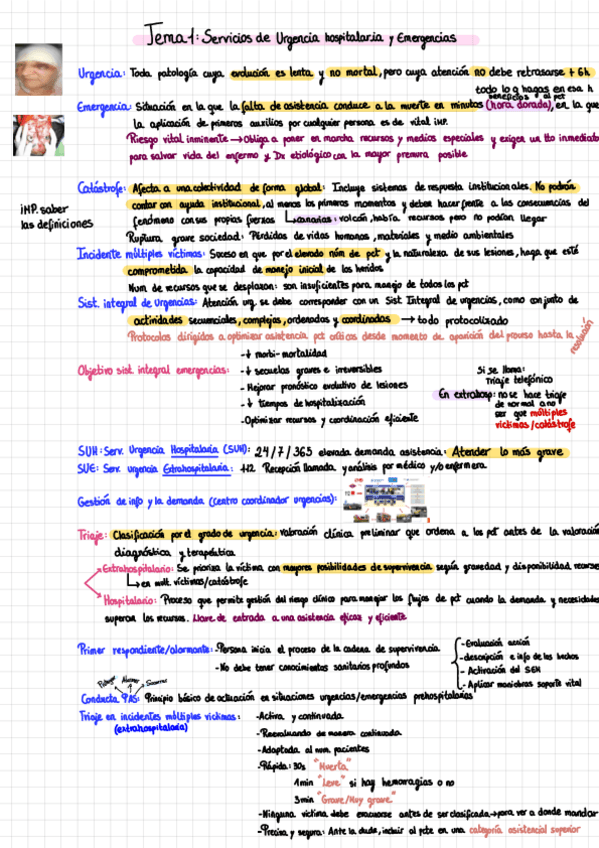 Tema 1: Servicios de Urgencia hospitalaria y Emergencias
Urgencia: Toda patología cuya evolución es lenta y no mortal, pero cuya atención no debe retrasarse + 6h
todo lo q hagas en esa h
beneficios al pct
Emergencia: Situación en la que la falta de asistencia conduce a la muerte en minutos (hora dorada), en la que
la aplicación de primeros auxilios por cualquier persona es de vital imp.
Riesgo vital inminente → Obliga a poner en marcha recursos y medios especiales y exigen un tto inmediato
para salvar vida del enfermo y Dx etiológico con la mayor premura posible
imp. saber
las definiciones
Catástrofe: Afecta a una colectividad de forma global: Incluye sistemas de respuesta institucionales. No podrán
contar con ayuda institucional, al menos los primeros momentos y deben hacer frente a las consecuencias del
fenómeno con sus propias fuerzas ↳ canarias: volcán, había recursos pero no podían llegar
Ruptura grave sociedad: Pérdidas de vidas humanas, materiales y medio ambientales
Incidente múltiples víctimas: Suceso en que por el elevado núm de pct y la naturaleza de sus lesiones, haga que esté
comprometida la capacidad de manejo inicial de los heridos
Num de recursos que se desplazan: son insuficientes para manejo de todos los pct
Sist. integral de Urgencias: Atención urg. se debe corresponder con un Sist Integral de urgencias, como conjunto de
actividades secuenciales, complejas, ordenadas y coordinadas → todo protocolizado
Protocolos dirigidos a optimizar asistencia pct críticos desde momento de aparición del proceso hasta la resolución
Objetivo sist. integral emergencias:
-↓ morbi-mortalidad
-↓ secuelas graves e irreversibles
- Mejorar pronóstico evolutivo de lesiones
-↓ tiempos de hospitalización
-Optimizar recursos y coordinación eficiente
Si se llama:
Triaje telefónico
En extrahosp: no se hace triaje
de normal a no
ser que múltiples
víctimas/catástrofe
SUH: Serv. Urgencia Hospitalaria (SUH): 24/7/365 elevada demanda asistencia: Atender lo más grave
SUE: Serv. urgencia Extrahospitalaria: 112 Recepción llamada y análisis por médico y/o enfermera.
Gestión de info y la demanda (centro coordinador urgencias):
Triaje: Clasificación por el grado de urgencia: valoración clínica preliminar que ordena a los pct antes de la valoración
diagnóstica y terapéutica
Extrahospitalario: Se prioriza la víctima con mayores posibilidades de supervivencia según gravedad y disponibilidad recursos
↳ en mult. víctimas/catástrofe
Hospitalario: Proceso que permite gestión del riesgo clínico para manejar los flujos de pct cuando la demanda y necesidades
superan los recursos. Llave de entrada a una asistencia eficaz y eficiente
Primer respondiente/alarmante: -Persona inicia el proceso de la cadena de supervivencia
-No debe tener conocimientos sanitarios profundos
-Evaluación acción
-descripción e info de los hechos
- Activación del SEM
- Aplicar maniobras soporte vital
Proteger Alarmar Socorrer
Conducta PAS: Principio básico de actuación en situaciones urgencias/emergencias prehospitalarias
Triaje en incidentes múltiples víctimas:
(extrahospitalaria)
-Activa y continuada
-Reevaluando de manera continuada
-Adaptada al num. pacientes
-Rápida: 30s "Muerta"
1min "Leve" si hay hemorragias o no
3min "Grave/Muy grave"
-Ninguna víctima debe evacuarse antes de ser clasificada → para ver a donde mandar
-Precisa y segura: Ante la duda, incluir al pcte en una categoría asistencial superior